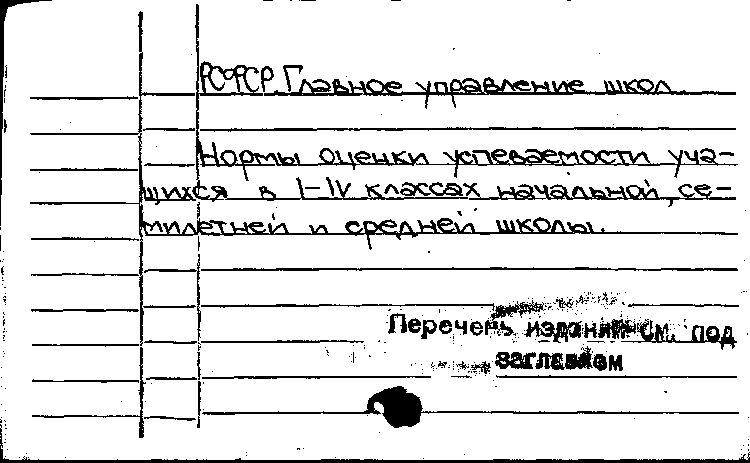 РСФСР. Главное управление школ.
Нормы оценки успеваемости уча-
щихся в I-IV классах начальной, се-
милетней и средней школы.
Перечень изданий см. под
заглавием